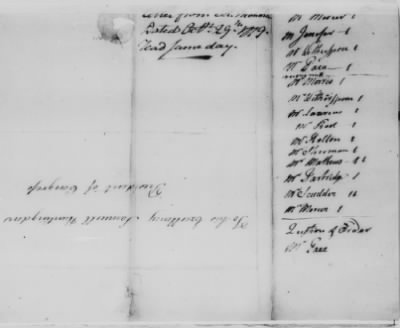 Letter from
Dated Octr. 29th 1779.
Read same day.
To his Excellency Samuell Huntingdon
President of Congress
Mr Mercer 1
Mr Jenifer 1
Mr Witherspoon 1
Mr Paca 1
Mr Morris 1
Mr Witherspoon 1
Mr Laurens 1
Mr Root 1
Mr Holten 1
Mr Sherman 1
Mr Mathews 11
Mr Partridge 1
Mr Scudder 11
Mr Mercer 1
Question of Order
Mr Paca